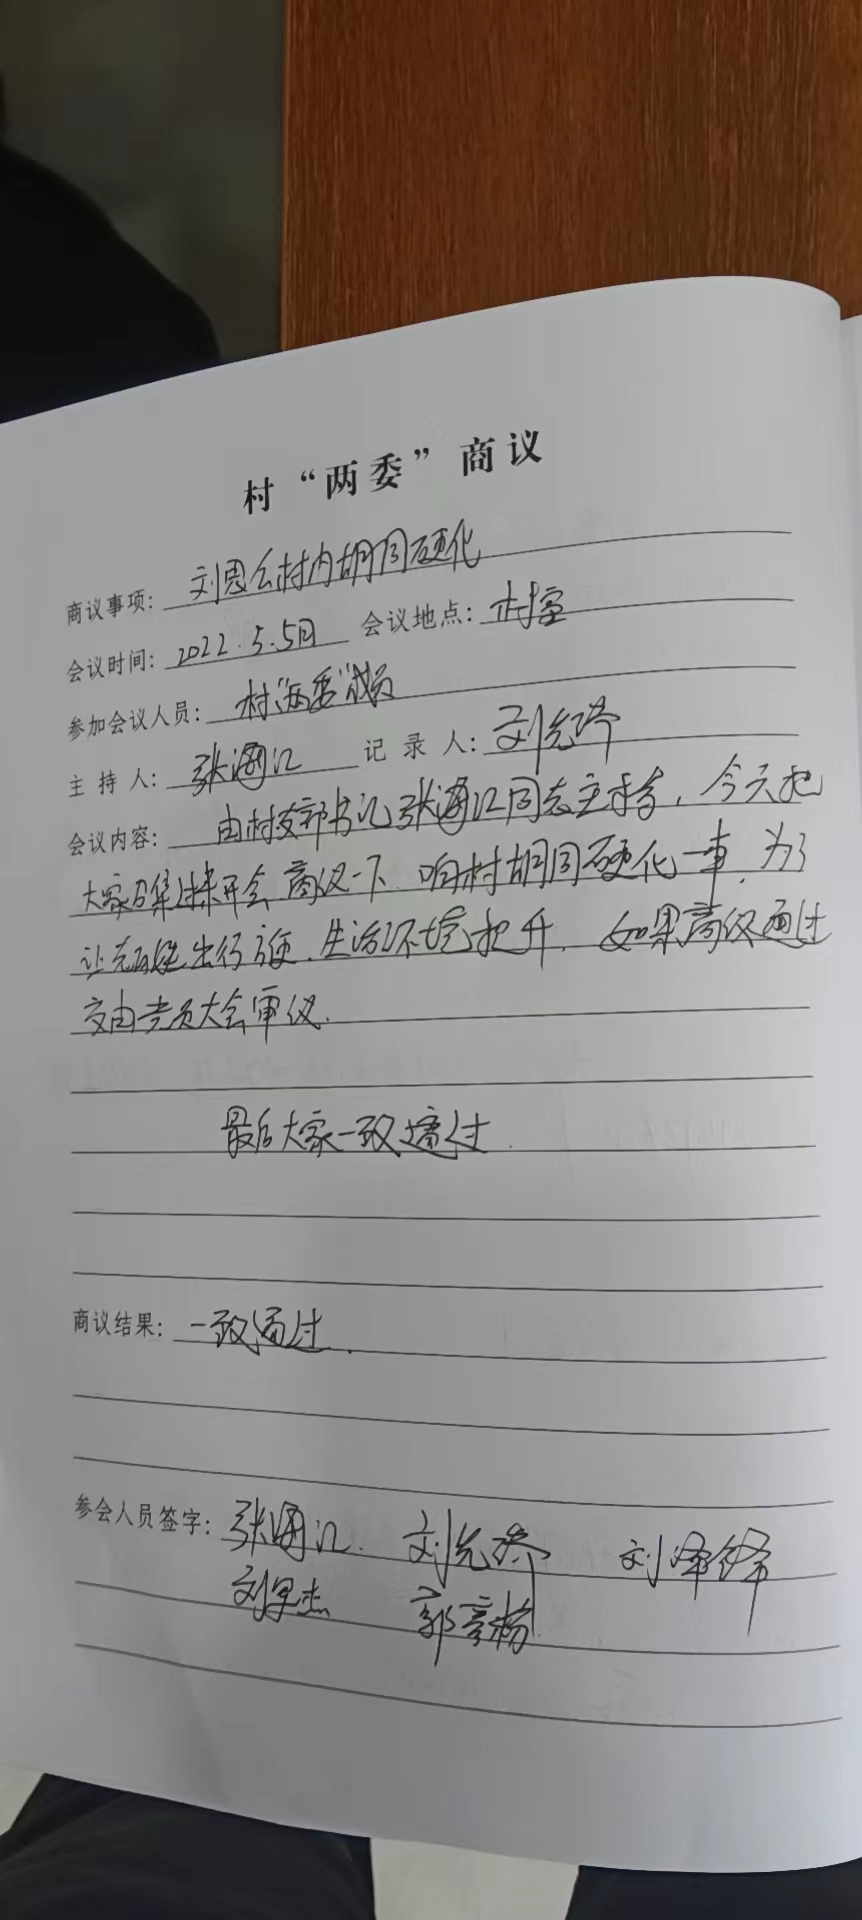 村“两委”商议
商议事项： 刘恩公村内胡同硬化
会议时间： 2022.5.5日 会议地点： 村室
参加会议人员： 村“两委”成员
主持人： 张海江 记录人： 刘先
会议内容： 由村支部书记张海江同志主持，今天把
大家召集过来开会商仪一下，咱村胡同硬化一事，为了
让 出行方便，生活环境提升，如果商仪通过
交由党员大会审仪.
最后大家一致通过.
商议结果： 一致通过.
参会人员签字： 张海江. 刘先 刘泽锋
刘 杰 郭彦